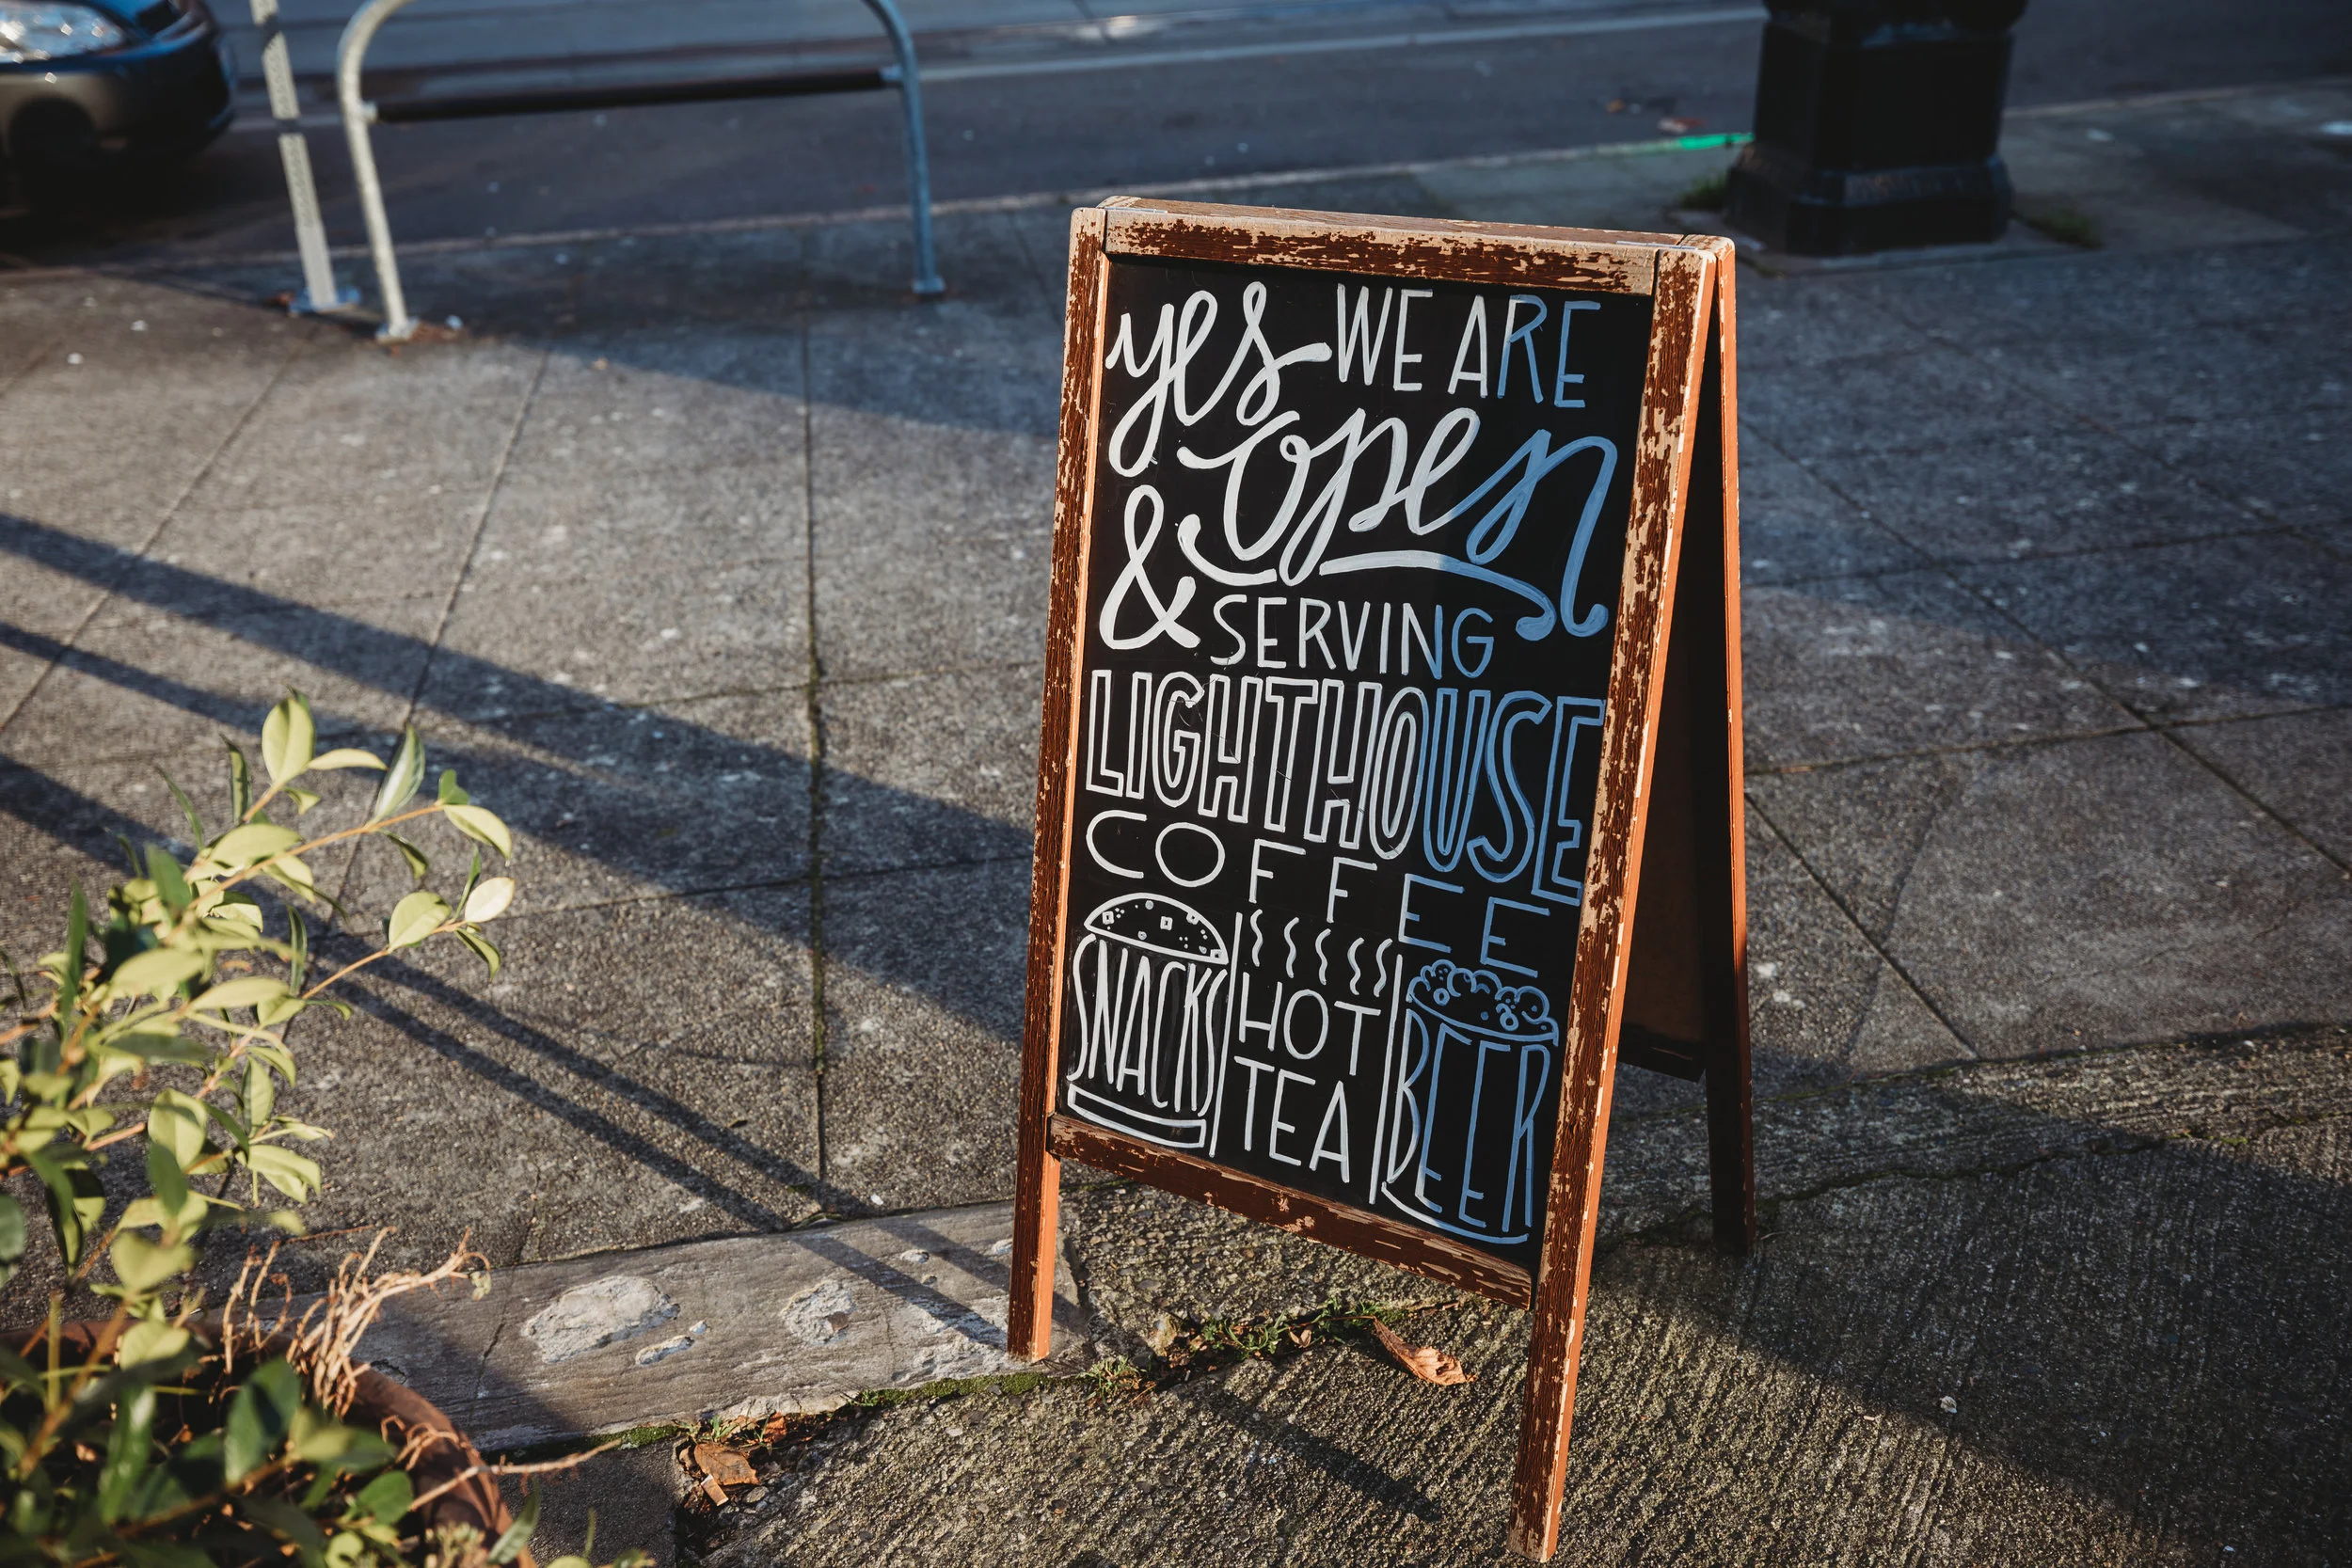 yes WE ARE
open
& SERVING
LIGHTHOUSE
COFFEE
SNACKS
HOT
TEA
BEER